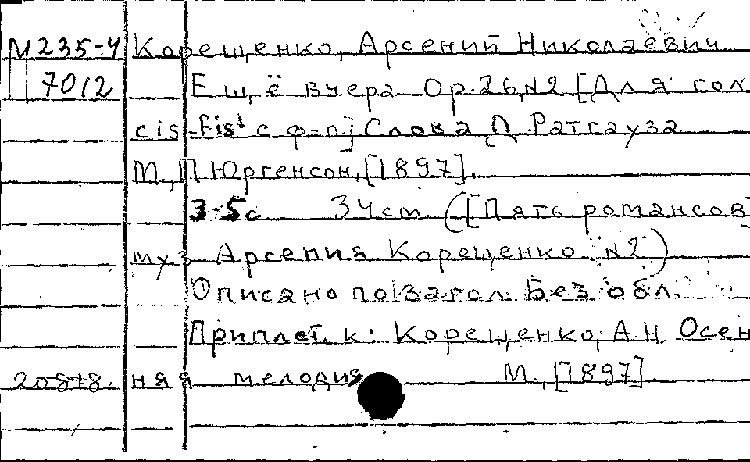 М235-4 Корещенко, Арсений Николаевич
7012 Ещё вчера Ор.26, №2 [Для гол.
cis-fis¹ с ф-п] Слова Д. Ратгауза
М., П. Юргенсон, [1897].
3-5с 34cm ([Пять романсов]
муз. Арсения Корещенко №2)
Описано по загол. Без обл.
Приплет. к: Корещенко, А.Н. Осен
ная мелодия М., [1897]